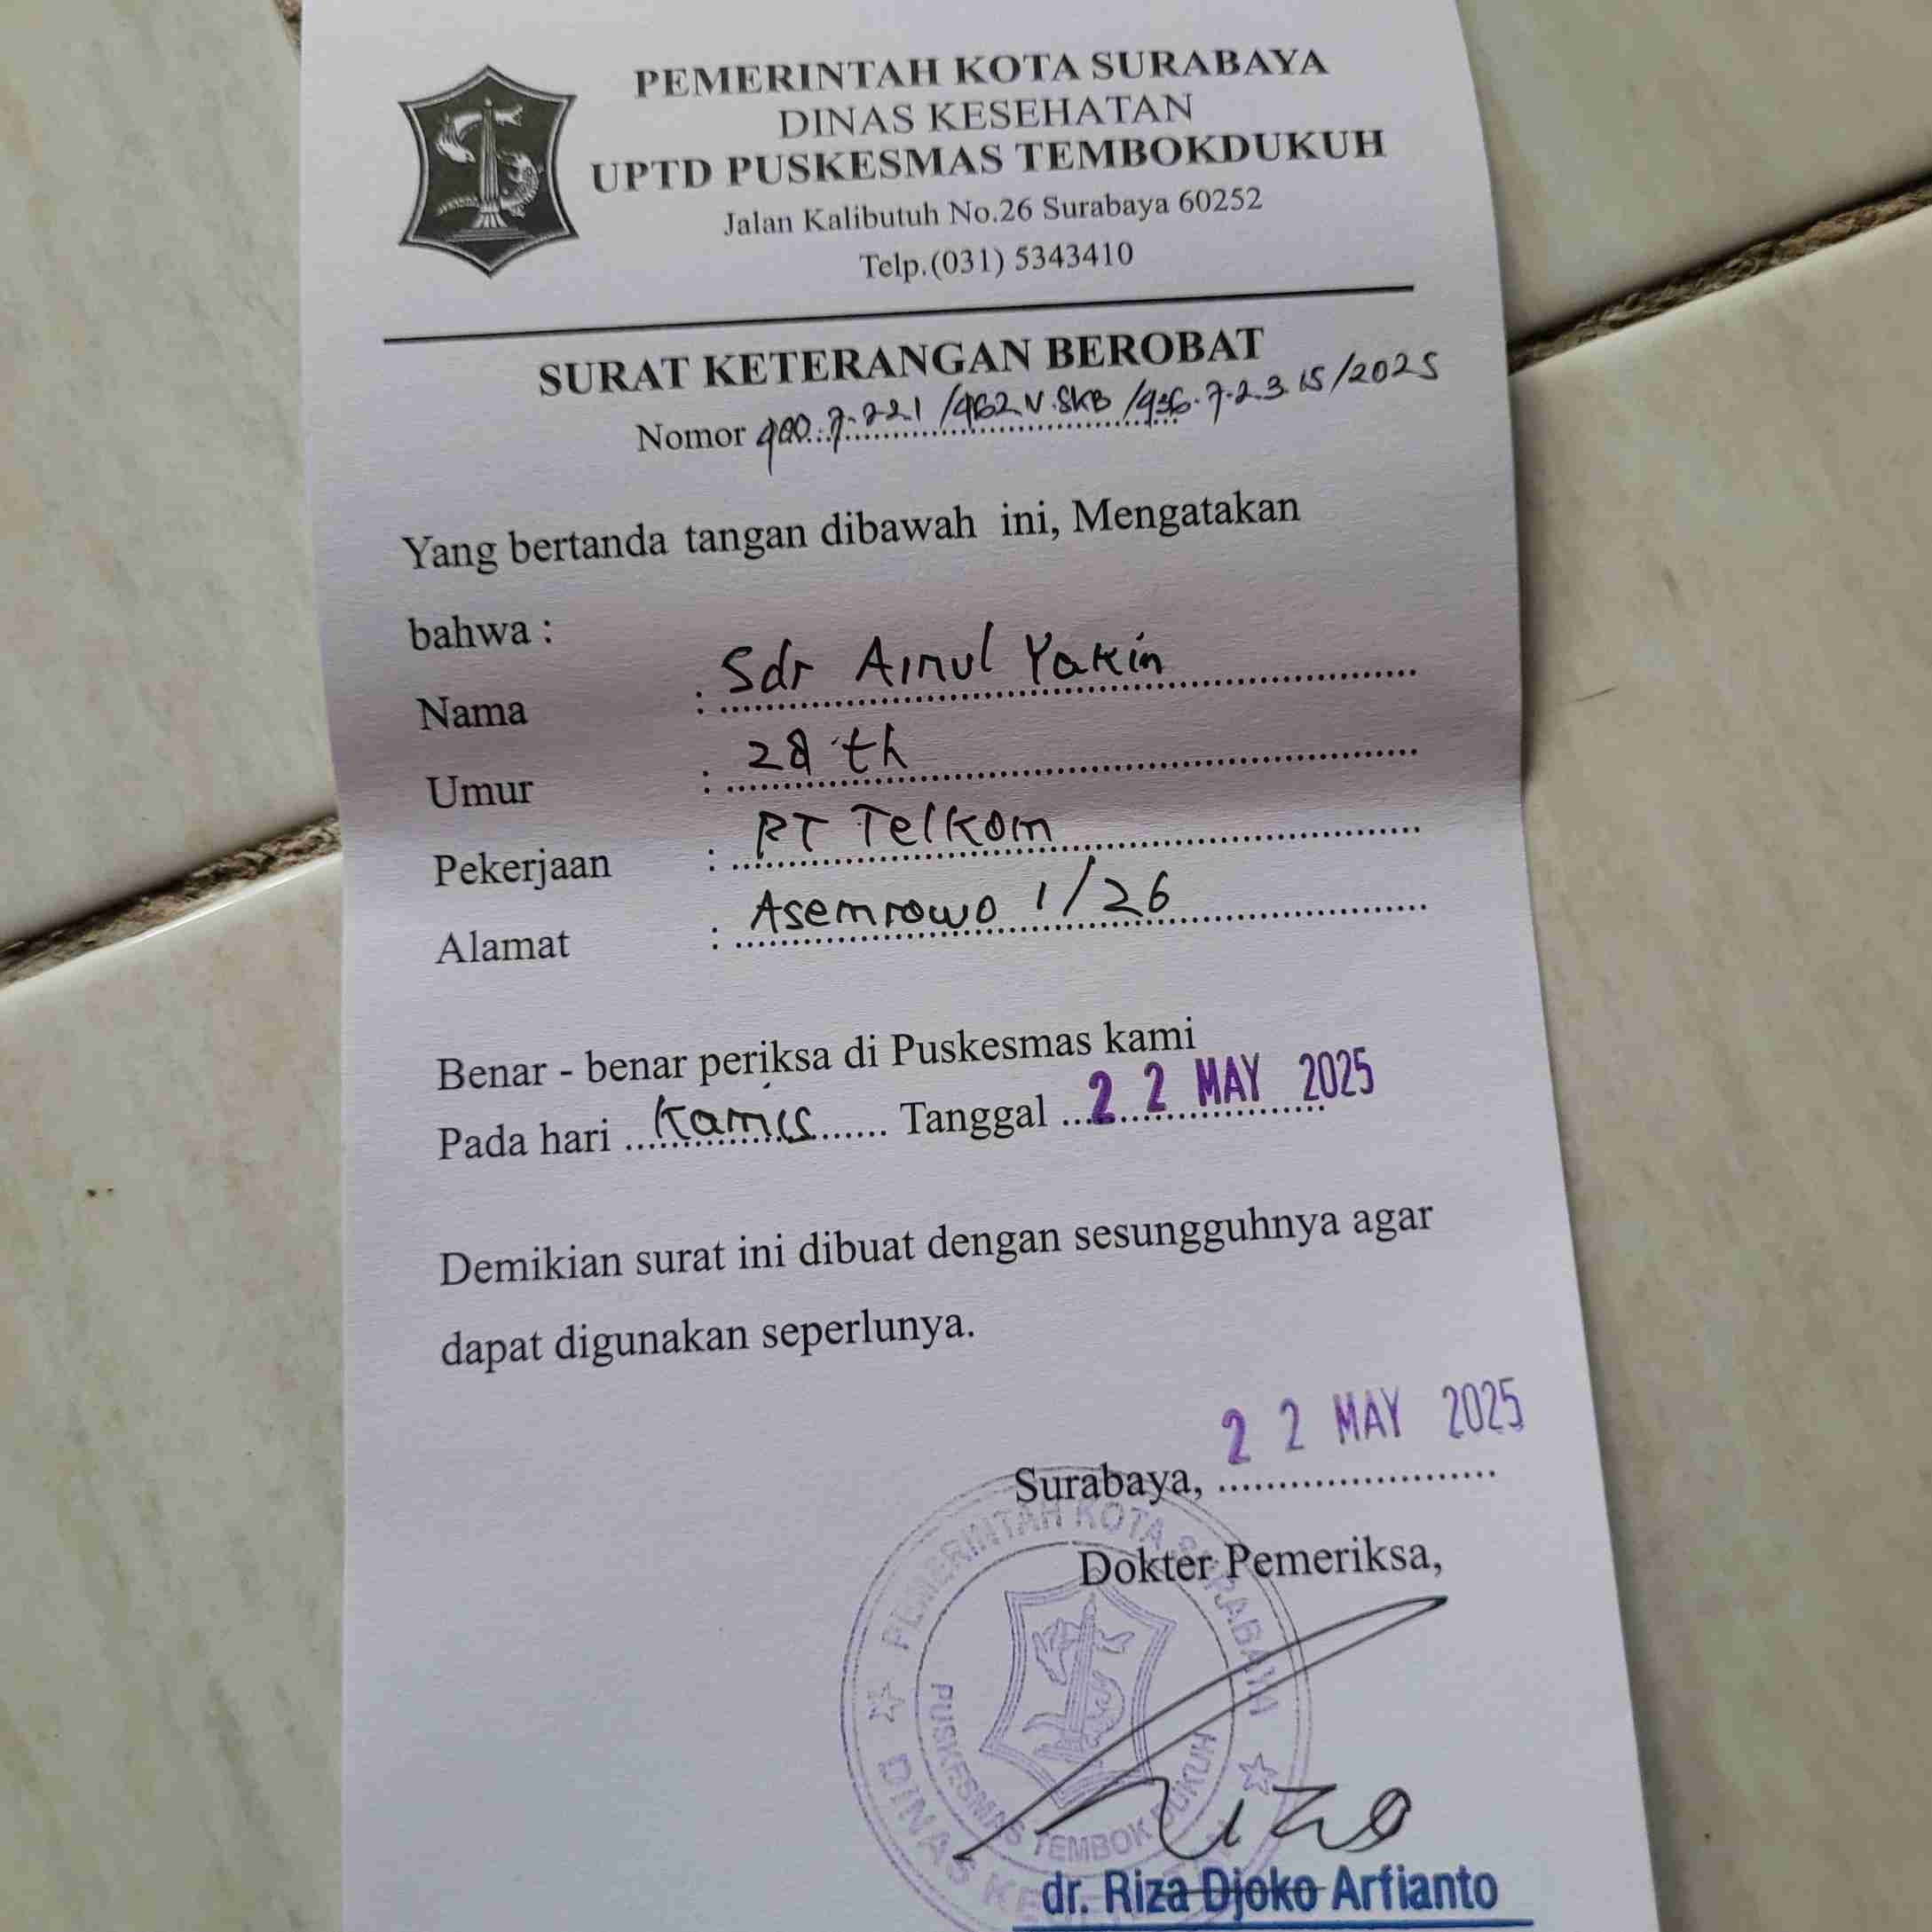 PEMERINTAH KOTA SURABAYA
DINAS KESEHATAN
UPTD PUSKESMAS TEMBOKDUKUH
Jalan Kalibutuh No.26 Surabaya 60252
Telp.(031) 5343410
SURAT KETERANGAN BEROBAT
Nomor 400.7.22.1 /462.V.SKB /436.7.2.3.15/2025
Yang bertanda tangan dibawah ini, Mengatakan
bahwa :
Nama : Sdr Ainul Yakin
Umur : 28 th
Pekerjaan : PT Telkom
Alamat : Asemrowo 1/26
Benar - benar periksa di Puskesmas kami
Pada hari Kamis Tanggal 22 MAY 2025
Demikian surat ini dibuat dengan sesungguhnya agar
dapat digunakan seperlunya.
22 MAY 2025
Surabaya,
Dokter Pemeriksa,
PEMERINTAH KOTA SURABAYA
PUSKESMAS TEMBOK DUKUH
DINAS
Riza
dr. Riza Djoko Arfianto